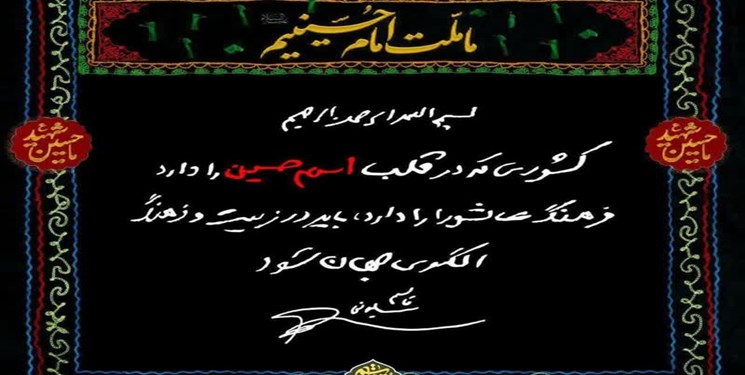 ما ملت امام حسینیم
بسم الله الرحمن الرحیم
کشوری که در قلب اسم حسین را دارد
فرهنگ عاشورا را دارد، باید در تربیت و فرهنگ
الگوی جهان شود
قاسم سلیمانی
ما حسین شهید
ما حسین شهید